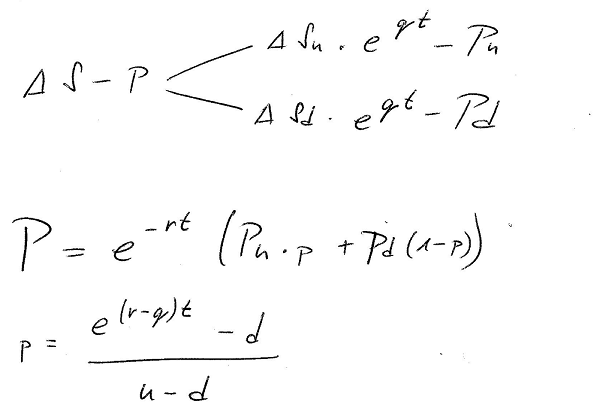 Δ Su · e^{qt} − Pu
Δ S − P
Δ Sd · e^{qt} − Pd
P = e^{−rt} (Pu · p + Pd (1−p))
p = \frac{e^{(r−q)t} − d}{u − d}